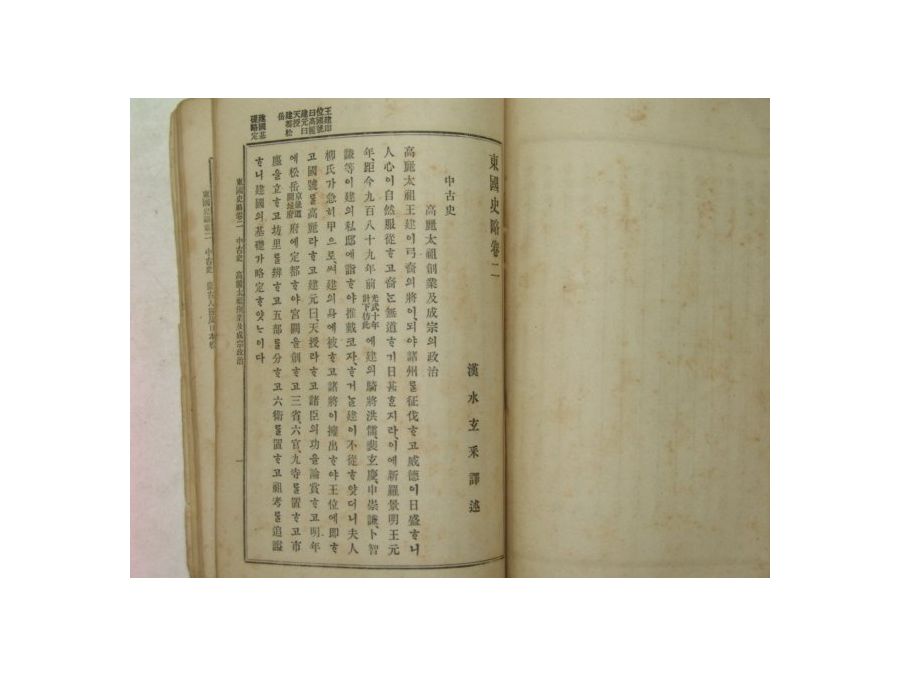 東國史略卷二
漢水玄采譯述
中古史
高麗太祖創業及成宗의政治
高麗太祖王建이弓裔의將이되야諸州를征伐ᄒᆞ고威德이日盛ᄒᆞ니
人心이自然服從ᄒᆞ고裔ᄂᆞᆫ無道ᄒᆞ기日甚ᄒᆞᆫ지라,이에新羅景明王元
年,距今九百八十九年前光武十年計下仿此에建의騎將洪儒,裴玄慶,申崇謙,卜智
謙等이建의私邸에詣ᄒᆞ야推戴코자,ᄒᆞ거ᄂᆞᆯ建이不從ᄒᆞ얏더니夫人
柳氏가急히甲으로,써建의身에被ᄒᆞ고諸將이擁出ᄒᆞ야王位에即ᄒᆞ
고國號를高麗라ᄒᆞ고建元曰,天授라ᄒᆞ고諸臣의功을論賞ᄒᆞ고明年
에松岳京畿道開城府府에定都ᄒᆞ야宮闕을創ᄒᆞ고三省,六官,九寺를置ᄒᆞ고市
廛을立ᄒᆞ고坊里를辨ᄒᆞ고五部를分ᄒᆞ고六衛를置ᄒᆞ고祖考를追諡
ᄒᆞ니建國의基礎가略定ᄒᆞ얏ᄂᆞ이다
王建即
位國號
曰高麗
建元曰
天授
建都松
岳
建國基
礎略定
東國史略卷二 中古史 高麗太祖創業及成宗政治 一
東國史略卷二 中古史